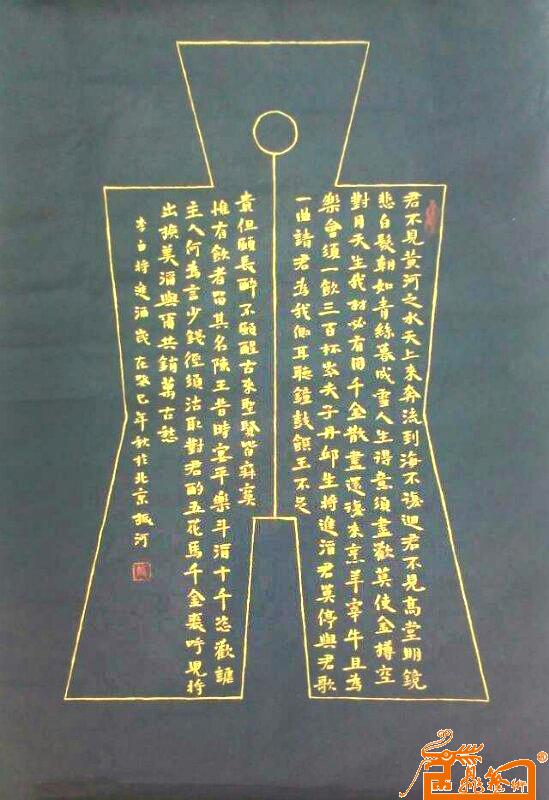 君不見黃河之水天上來奔流到海不復迴君不見高堂明鏡
悲白髮朝如青絲暮成雪人生得意須盡歡莫使金樽空
對月天生我材必有用千金散盡還復來烹羊宰牛且為
樂會須一飲三百杯岑夫子丹邱生將進酒君莫停與君歌
一曲請君為我側耳聽鐘鼓饌玉不足
貴但願長醉不願醒古來聖賢皆寂寞
惟有飲者留其名陳王昔時宴平樂斗酒十千恣歡謔
主人何為言少錢徑須沽取對君酌五花馬千金裘呼兒將
出換美酒與爾共銷萬古愁
李白將進酒歲在癸巳年秋於北京振河